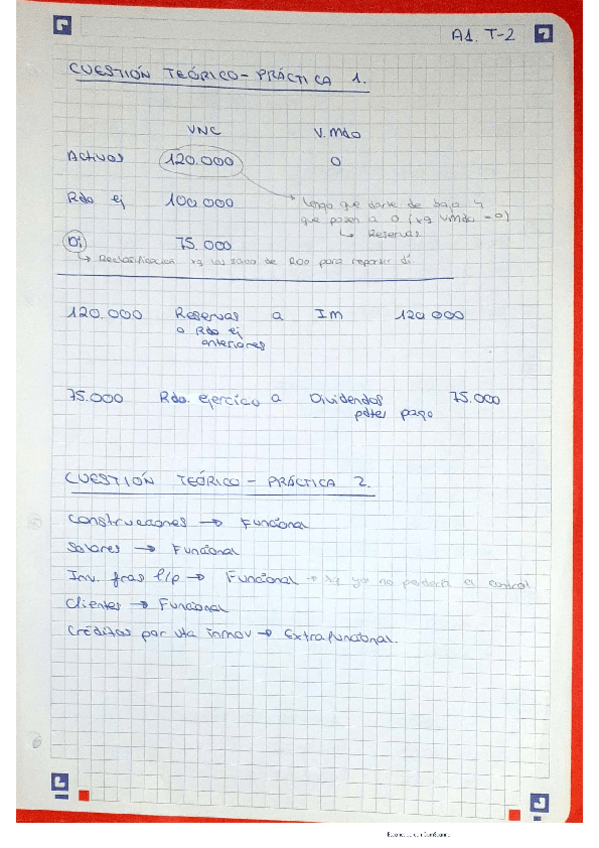 A1. T-2
CUESTIÓN TEÓRICO-PRÁCTICA 1.
VNC V.Mdo
Activos 120.000 0
Rdo ej 100.000 tengo que darle de baja y
que pasen a 0 (xq vmdo = 0)
↳ Reservas
Di 75.000
↳ Reclasificación xq los saco de RDO para repartir di
120.000 Reservas a IM 120.000
o Rdo ej
anteriores
75.000 Rdo. ejercicio a Dividendos 75.000
pdtes pago
CUESTIÓN TEÓRICO-PRÁCTICA 2.
Construcciones → Funcional
Solares → Funcional
Inv. fras l/p → Funcional → xq yo no perdería el control
Clientes → Funcional
Créditos por vta inmov → Extrafuncional.